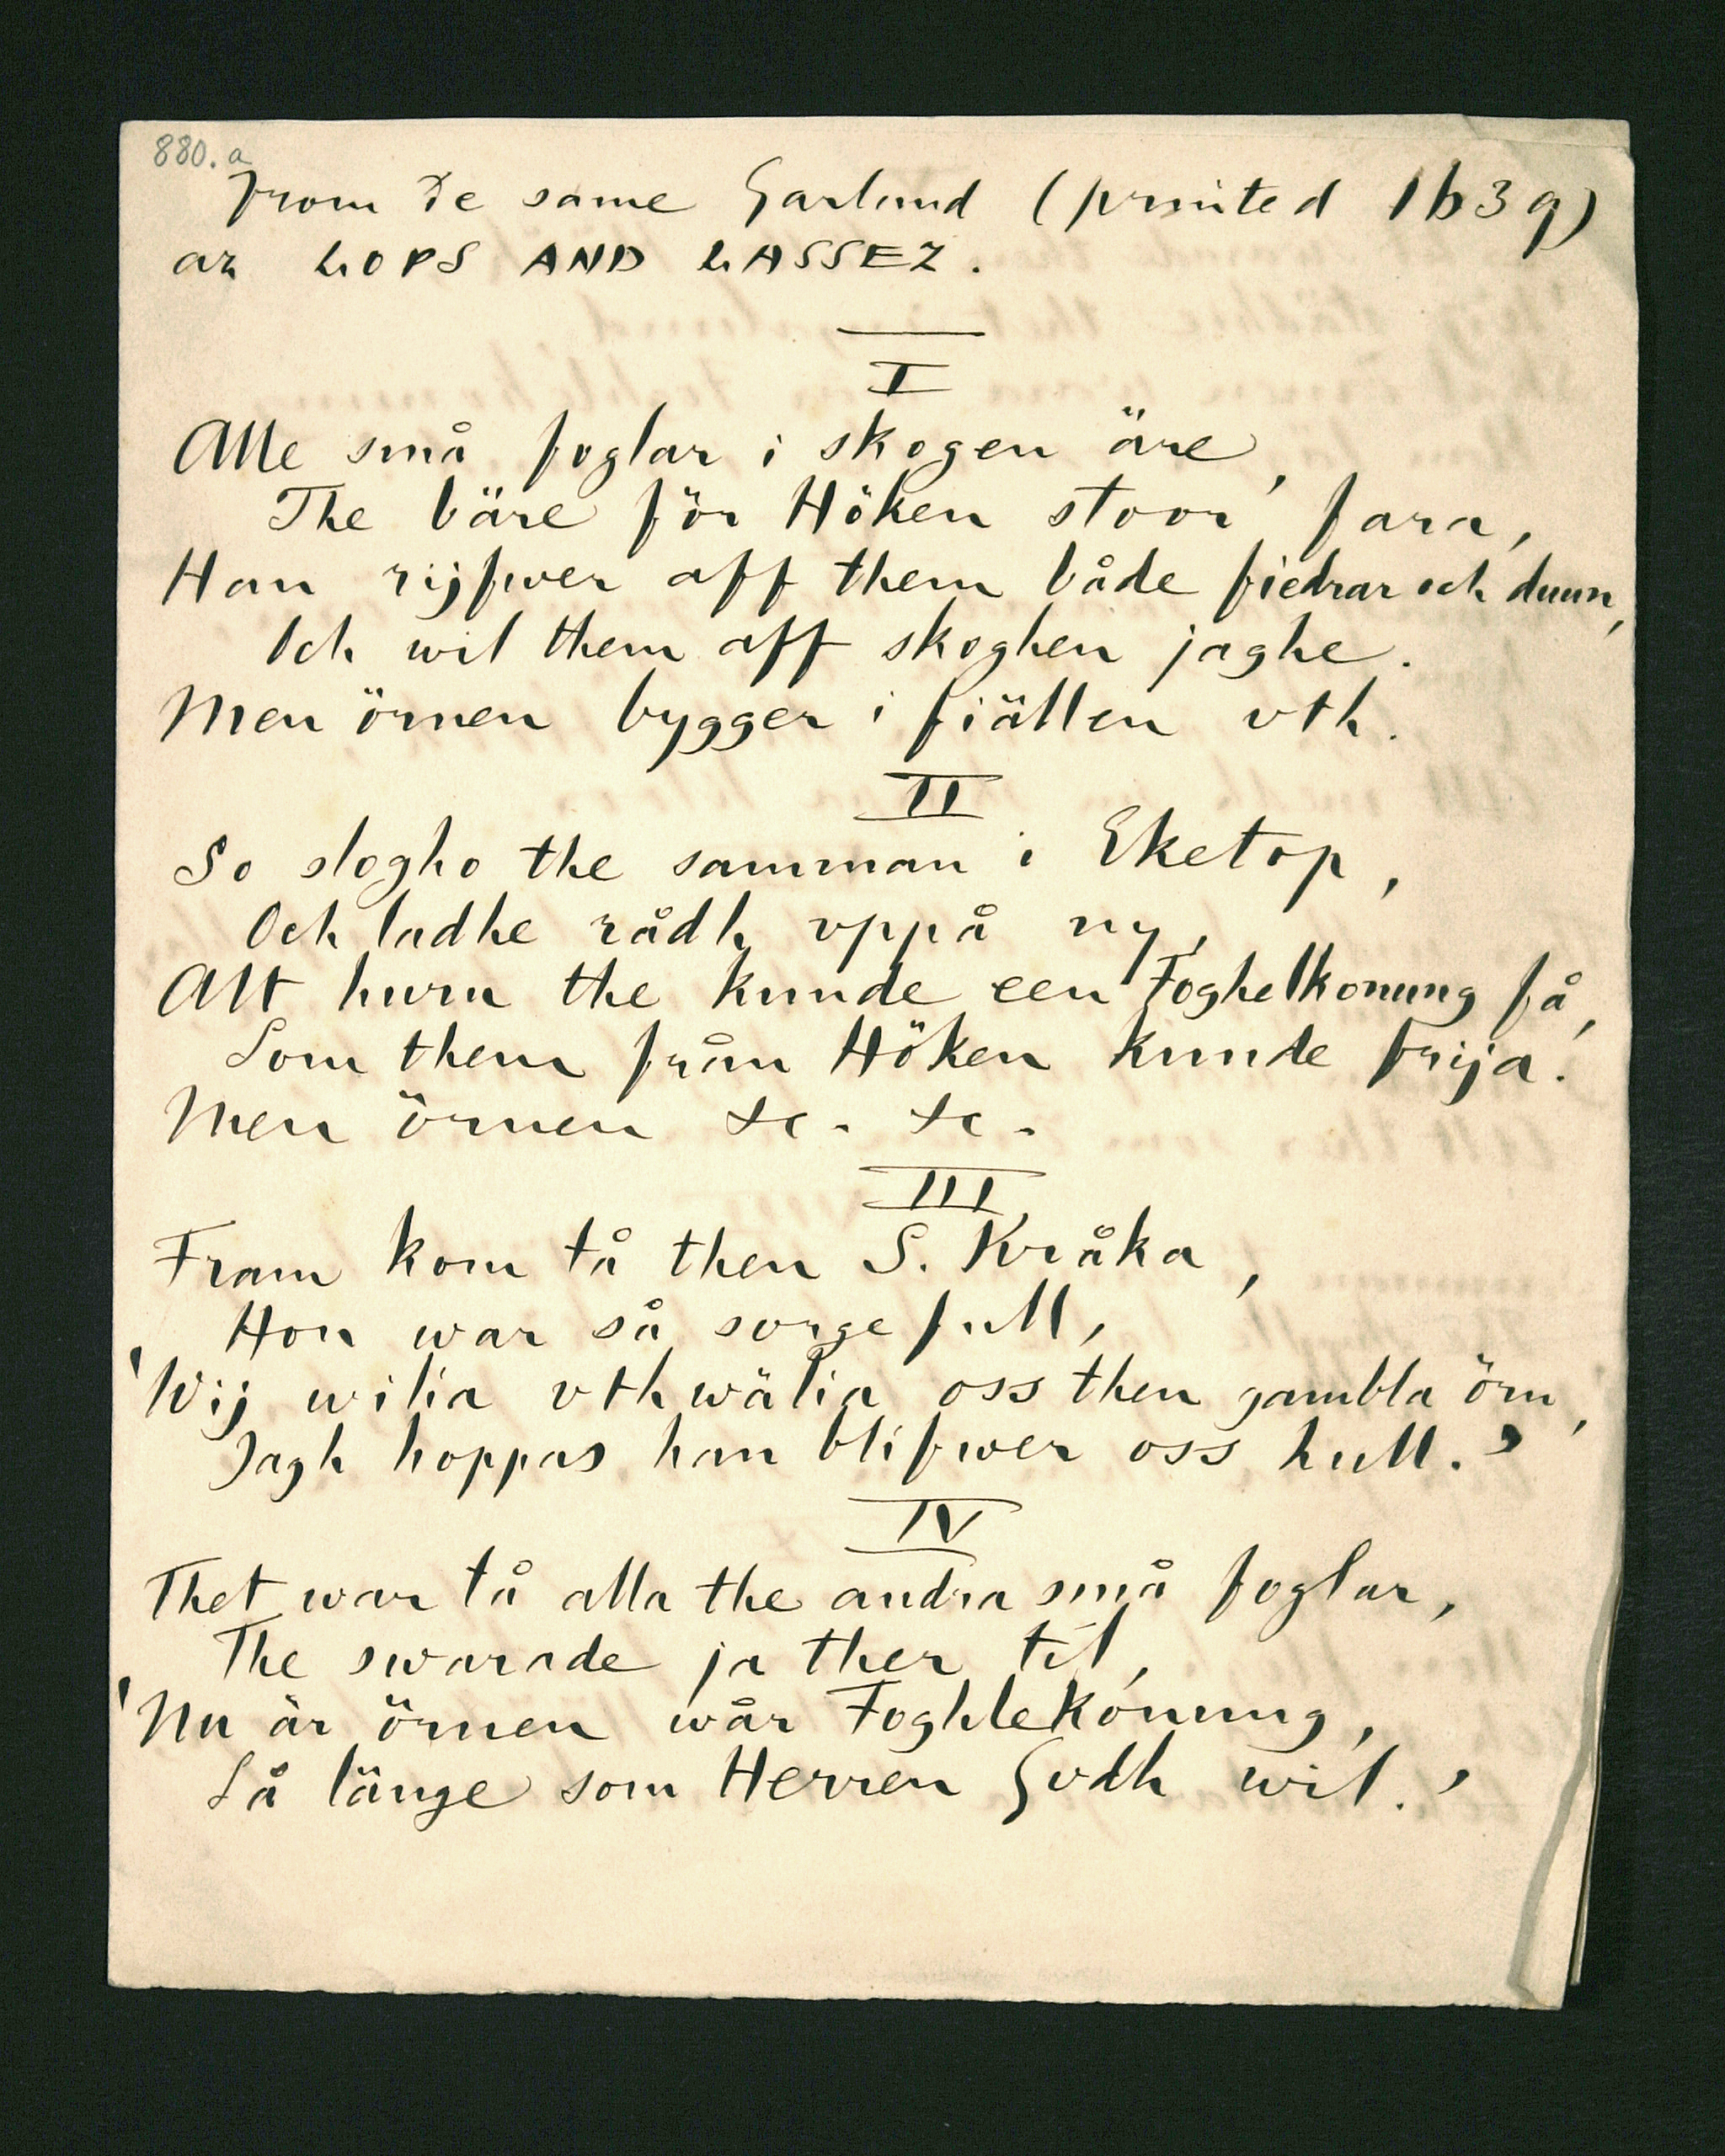 880.a
From De same Garland (printed 1639)
az LOPS AND LASSEZ.
I
Alle små foglar i skogen äre,
The bäre för Höken stoor fara,
Han rijfwer aff them både fiedrar och duun,
Och wil them aff skoghen jaghe.
Men örnen bygger i fiällen vth.
II
So slogho the samman i Eketop,
Och ladhe rådh vppå ny,
Alt huru the kunde een Foghelkonung få,
Som them från Höken kunde frija.
Men örnen &c. &c.
III
Fram kom tå then S. Kråka,
Hon war så sorgefull,
'Wij wilia vthwälia oss then gambla örn,
Jagh hoppas han blifwer oss hull.'
IV
Thet war tå alla the andra små foglar,
The swarade ja ther til,
'Nu är örnen wår Foghlekonung,
Så länge som Herren Gudh wil.'